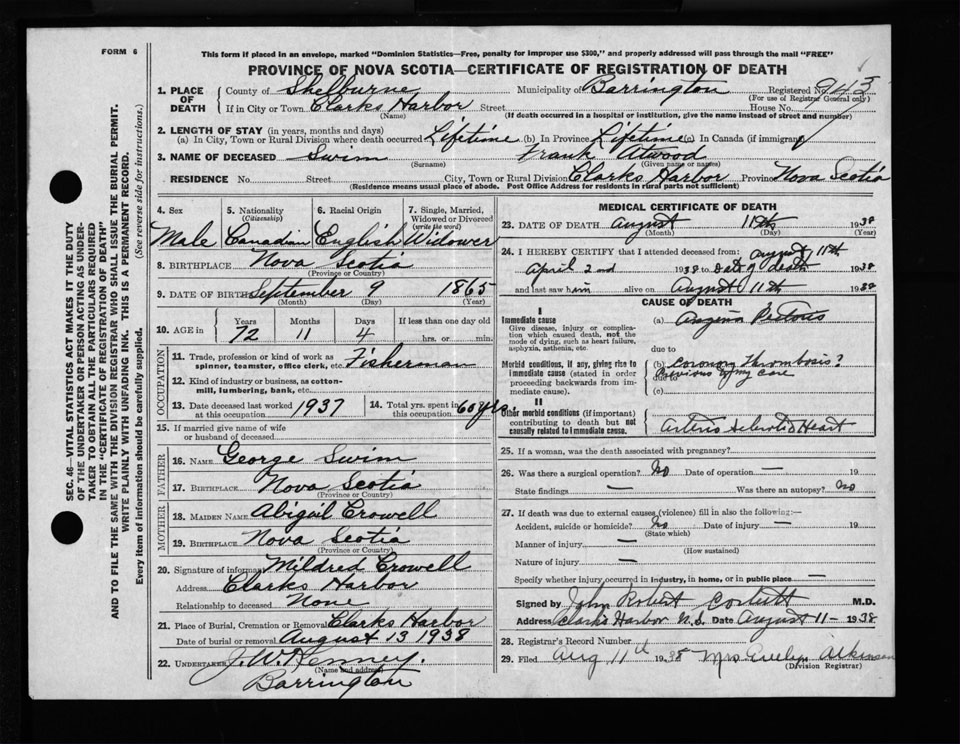 FORM 6
This form if placed in an envelope, marked "Dominion Statistics—Free, penalty for improper use $300," and properly addressed will pass through the mail "FREE"
PROVINCE OF NOVA SCOTIA—CERTIFICATE OF REGISTRATION OF DEATH
SEC. 46—VITAL STATISTICS ACT MAKES IT THE DUTY
OF THE UNDERTAKER OR PERSON ACTING AS UNDER-
TAKER TO OBTAIN ALL THE PARTICULARS REQUIRED
IN THE "CERTIFICATE OF REGISTRATION OF DEATH"
AND TO FILE THE SAME WITH THE DIVISION REGISTRAR WHO SHALL ISSUE THE BURIAL PERMIT.
WRITE PLAINLY WITH UNFADING INK. THIS IS A PERMANENT RECORD.
Every item of information should be carefully supplied. (See reverse side for instructions.)
1. PLACE OF DEATH County of Shelburne Municipality of Barrington Registered No. 943
(For use of Registrar General only)
If in City or Town Clarks Harbor Street House No.
(Name) (If death occurred in a hospital or institution, give the name instead of street and number)
2. LENGTH OF STAY (in years, months and days)
(a) In City, Town or Rural Division where death occurred Lifetime (b) In Province Lifetime (c) In Canada (if immigrant)
3. NAME OF DECEASED Swim Frank Atwood
(Surname) (Given name or names)
RESIDENCE No. Street City, Town or Rural Division Clarks Harbor Province Nova Scotia
(Residence means usual place of abode. Post Office Address for residents in rural parts not sufficient)
4. Sex 5. Nationality (Citizenship) 6. Racial Origin 7. Single, Married, Widowed or Divorced (write the word)
Male Canadian English Widower
8. BIRTHPLACE Nova Scotia
(Province or Country)
9. DATE OF BIRTH September 9 1865
(Month) (Day) (Year)
10. AGE in Years Months Days If less than one day old
72 11 4 hrs. or min.
OCCUPATION
11. Trade, profession or kind of work as
spinner, teamster, office clerk, etc. Fisherman
12. Kind of industry or business, as cotton-
mill, lumbering, bank, etc.
13. Date deceased last worked at this occupation 1937 14. Total yrs. spent in this occupation 60 yrs
15. If married give name of wife
or husband of deceased
FATHER
16. NAME George Swim
17. BIRTHPLACE Nova Scotia
(Province or Country)
MOTHER
18. MAIDEN NAME Abigail Crowell
19. BIRTHPLACE Nova Scotia
(Province or Country)
20. Signature of informant Mildred Crowell
Address Clarks Harbor
Relationship to deceased None
21. Place of Burial, Cremation or Removal Clarks Harbor
Date of burial or removal August 13 1938
22. UNDERTAKER J. W. Kenney.
(Name and address)
Barrington
MEDICAL CERTIFICATE OF DEATH
23. DATE OF DEATH August 11th 1938
(Month) (Day) (Year)
24. I HEREBY CERTIFY that I attended deceased from: August 11th
April 2nd 1938 to Date of death 1938
and last saw him alive on August 11th 1938
CAUSE OF DEATH
I
Immediate cause (a) Angina Pectoris
Give disease, injury or complica-
tion which caused death, not the
mode of dying, such as heart failure,
asphyxia, asthenia, etc. due to
Morbid conditions, if any, giving rise to
immediate cause (stated in order
proceeding backwards from im-
mediate cause).
(b) Coronary Thrombosis?
Previous to my care
due to
(c)
II
Other morbid conditions (if important)
contributing to death but not
causally related to immediate cause. Arterio Sclerotic Heart
25. If a woman, was the death associated with pregnancy?
26. Was there a surgical operation? No Date of operation — 19
State findings — Was there an autopsy? No
27. If death was due to external causes (violence) fill in also the following:—
Accident, suicide or homicide? No Date of injury — 19
(State which)
Manner of injury —
(How sustained)
Nature of injury —
Specify whether injury occurred in industry, in home, or in public place —
Signed by John Robert Corbett M.D.
Address Clarks Harbor N.S. Date August 11 - 1938
28. Registrar's Record Number
29. Filed Aug 11th 1938 Mrs Evelyn Atkinson
(Division Registrar)